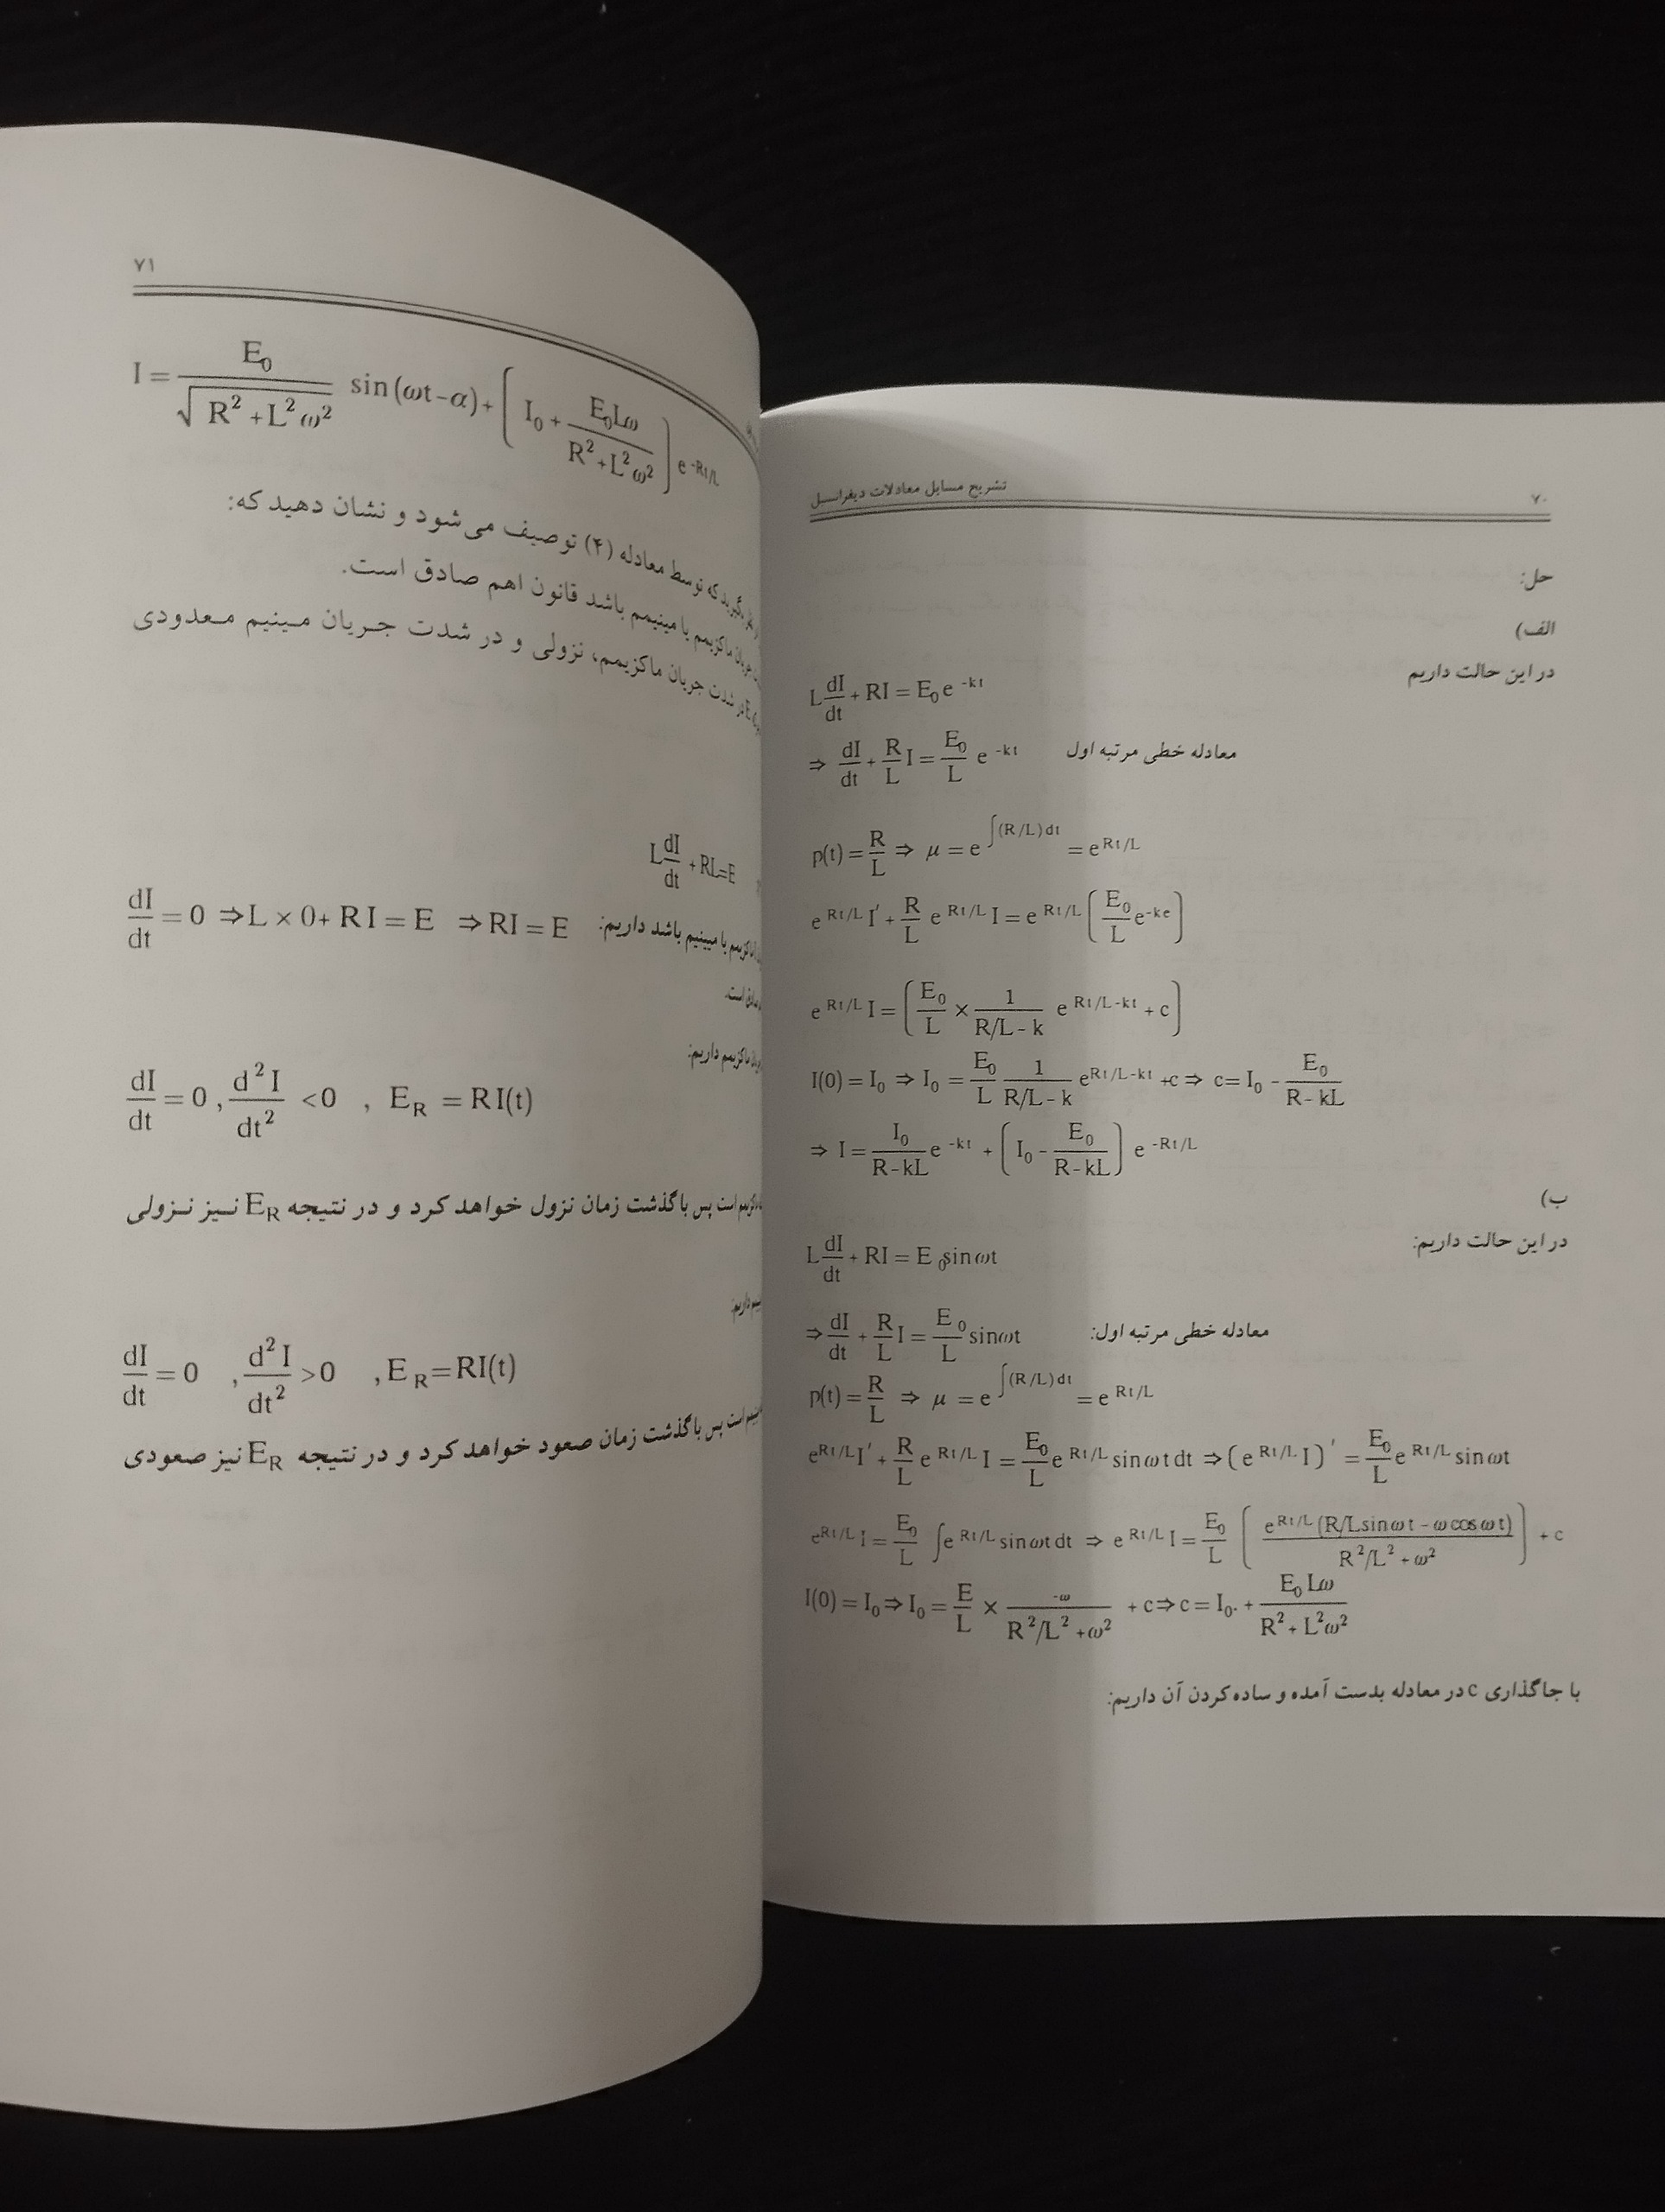 ۷۰
تشریح مسایل معادلات دیفرانسیل
حل:
الف)
در این حالت داریم
L dI/dt + RI = E₀ e^(-kt)
⇒ dI/dt + R/L I = E₀/L e^(-kt) معادله خطی مرتبه اول
p(t) = R/L ⇒ μ = e^(∫(R/L)dt) = e^(Rt/L)
e^(Rt/L) I′ + R/L e^(Rt/L) I = e^(Rt/L) (E₀/L e^(-ke))
e^(Rt/L) I = (E₀/L × 1/(R/L-k) e^(Rt/L-kt) + c)
I(0) = I₀ ⇒ I₀ = E₀/L 1/(R/L-k) e^(Rt/L-kt) + c ⇒ c = I₀ - E₀/(R-kL)
⇒ I = I₀/(R-kL) e^(-kt) + (I₀ - E₀/(R-kL)) e^(-Rt/L)
ب)
در این حالت داریم:
L dI/dt + RI = E₀ sinωt
⇒ dI/dt + R/L I = E₀/L sinωt معادله خطی مرتبه اول:
p(t) = R/L ⇒ μ = e^(∫(R/L)dt) = e^(Rt/L)
e^(Rt/L) I′ + R/L e^(Rt/L) I = E₀/L e^(Rt/L) sinωt dt ⇒ (e^(Rt/L) I)′ = E₀/L e^(Rt/L) sinωt
e^(Rt/L) I = E₀/L ∫e^(Rt/L) sinωt dt ⇒ e^(Rt/L) I = E₀/L (e^(Rt/L) (R/L sinωt - ω cosωt)/(R²/L² + ω²)) + c
I(0) = I₀ ⇒ I₀ = E/L × -ω/(R²/L² + ω²) + c ⇒ c = I₀. + E₀Lω/(R² + L²ω²)
با جاگذاری c در معادله بدست آمده و ساده کردن آن داریم:
۷۱
I = E₀/√(R² + L²ω²) sin(ωt-α) + (I₀ + E₀Lω/(R² + L²ω²)) e^(-Rt/L)
که توسط معادله (۴) توصیف می‌شود و نشان دهید که:
ماکزیمم یا مینیمم باشد قانون اهم صادق است.
در شدت جریان ماکزیمم، نزولی و در شدت جریان مینیم معدودی
L dI/dt + RL = E
ماکزیمم یا میینیم باشد داریم: dI/dt = 0 ⇒ L × 0 + RI = E ⇒ RI = E
صادق است.
ماکزیمم داریم:
dI/dt = 0 , d²I/dt² < 0 , E_R = RI(t)
ماکزیمم است پس با گذشت زمان نزول خواهد کرد و در نتیجه E_R نیز نزولی
داریم:
dI/dt = 0 , d²I/dt² > 0 , E_R = RI(t)
است پس با گذشت زمان صعود خواهد کرد و در نتیجه E_R نیز صعودی